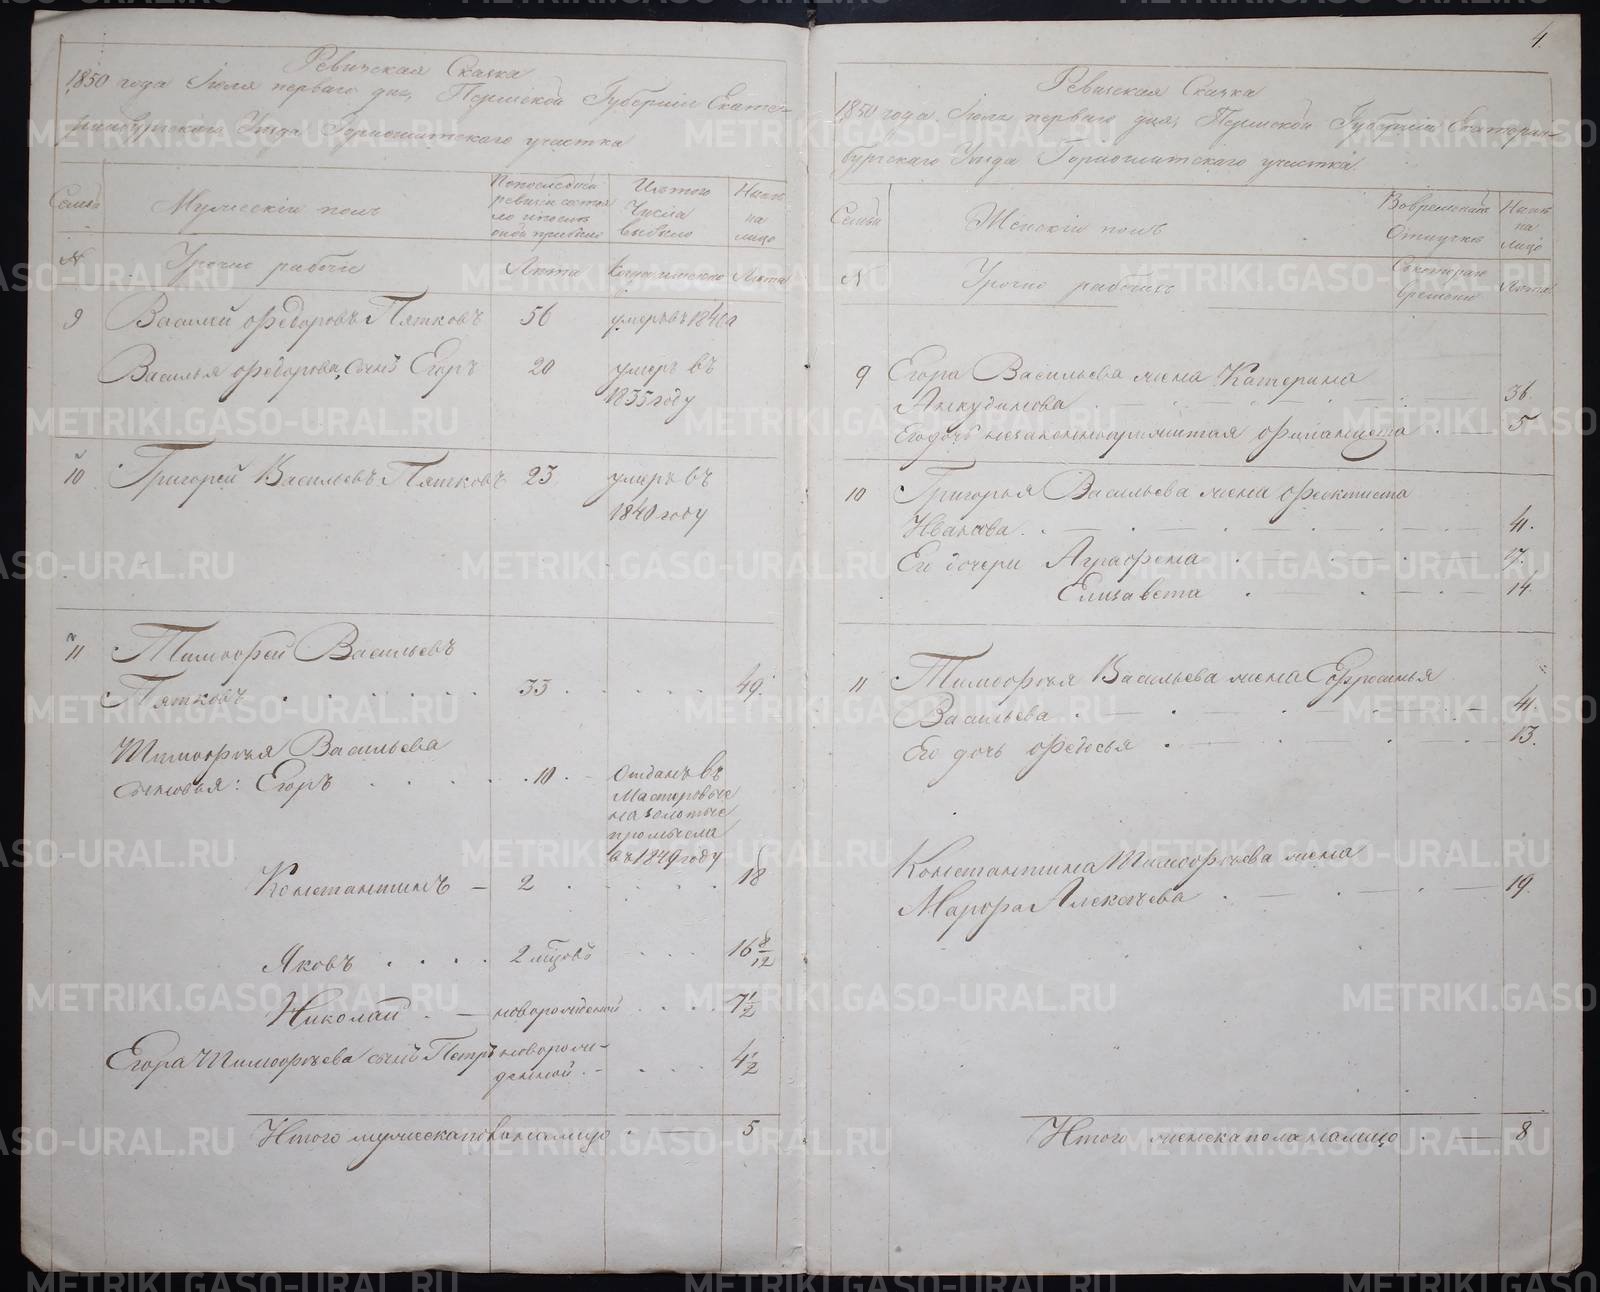 Ревичская Скаска
1850 года Іюля перваго дня, Пермской Губерніи Екате-
ринбургскаго Уѣзда Горнощитскаго участка
Семьи
Мужескій полъ
По последней
ревизіи состоя
ло и после
оной прибыло
Изъ того
Числа
выбыло
Ныне
на
лицо
№
Урочно рабочіе
Лѣта
Лѣта
9 Василий Федоровъ Пятковъ 56 умеръ въ 1840
Василья Федорова, сынъ Егоръ 20 умеръ въ
1835 году
10 Григорей Васильевъ Пятковъ 23 умеръ въ
1840 году
11 Тимофей Васильевъ
Пятковъ 33 49.
Тимофѣя Васильева
сыновья: Егоръ 10. Отданъ въ
Мастеровые
на золотые
промысла
въ 1849 году
Константинъ — 2 18
Яковъ 2 мцовъ 16 8/12
Николай — новорожденой 7 1/2
Егора Тимофѣева сынъ Петръ новорож-
денной 4 1/2
Итого мужеска пола на лицо — 5
4.
Ревизская Скаска
1850 года Іюля перваго дня, Пермской Губерніи Екатерин-
бургскаго Уѣзда Горнощитскаго участка.
Семьи
Женскій полъ
Во временной
Отлучке
Ныне
на
лицо
№
Урочно рабочихъ
Съ котораго
времени
Лѣта
9 Егора Васильева жена Катерина
Анкудинова 36.
Его дочь незаконноприжитая Филансета 5
10 Григорья Васильева жена Феоктиста
Иванова 41.
Ея дочери Аграфена 17.
Елизавета 14.
11 Тимофѣя Васильева жена Ефросинья
Васильева 41.
Его дочь Федосья 13.
Константина Тимофѣева жена
Марфа Алексѣева 19.
Итого женска пола на лицо — 8
METRIKI.GASO-URAL.RU